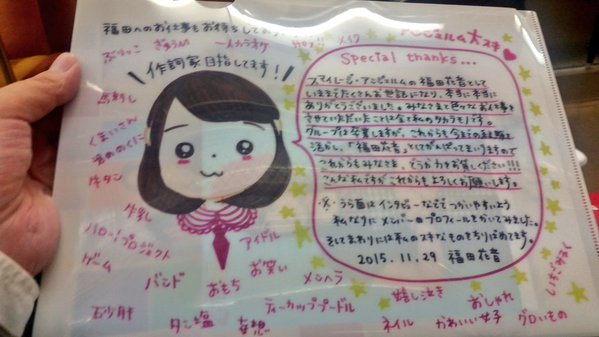 福田へのお仕事をお待ちしてお
アンジュルム大スキ
ぶりっこ
ぎゅうにく
イメチェン
メイク
作詞家目指してます!
馬刺し
くまいさん
牛タン
牛乳
ハロー!プロジェクト
ゲーム
バンド
石少肝
タン塩
妄想
アイドル
おもち
お笑い
メンヘラ
ティーカッププードル
嬉し泣き
おしゃれ
ネイル
かわいい女子
グロいもの
Special thanks...
スマイレージ・アンジュルムの福田花音として
いままでたくさんお世話になり、本当に本当に
ありがとうございました。みなさまと色々なお仕事を
させていただいたことは全て私のタカラモノです。
グループは卒業しますが、これからも今までの経験を
活かし、「福田花音」としてがんばってまいりますので
これからもみなさま、どうか力をお貸しください!!!
こんな私ですがこれからもよろしくお願いします。
・×・うら面はインタビューなどでつかいやすいよう
私なりにメンバーのプロフィールをかいてみました。
そしてまわりには私のスキなものをちりばめてます。
2015.11.29 福田花音